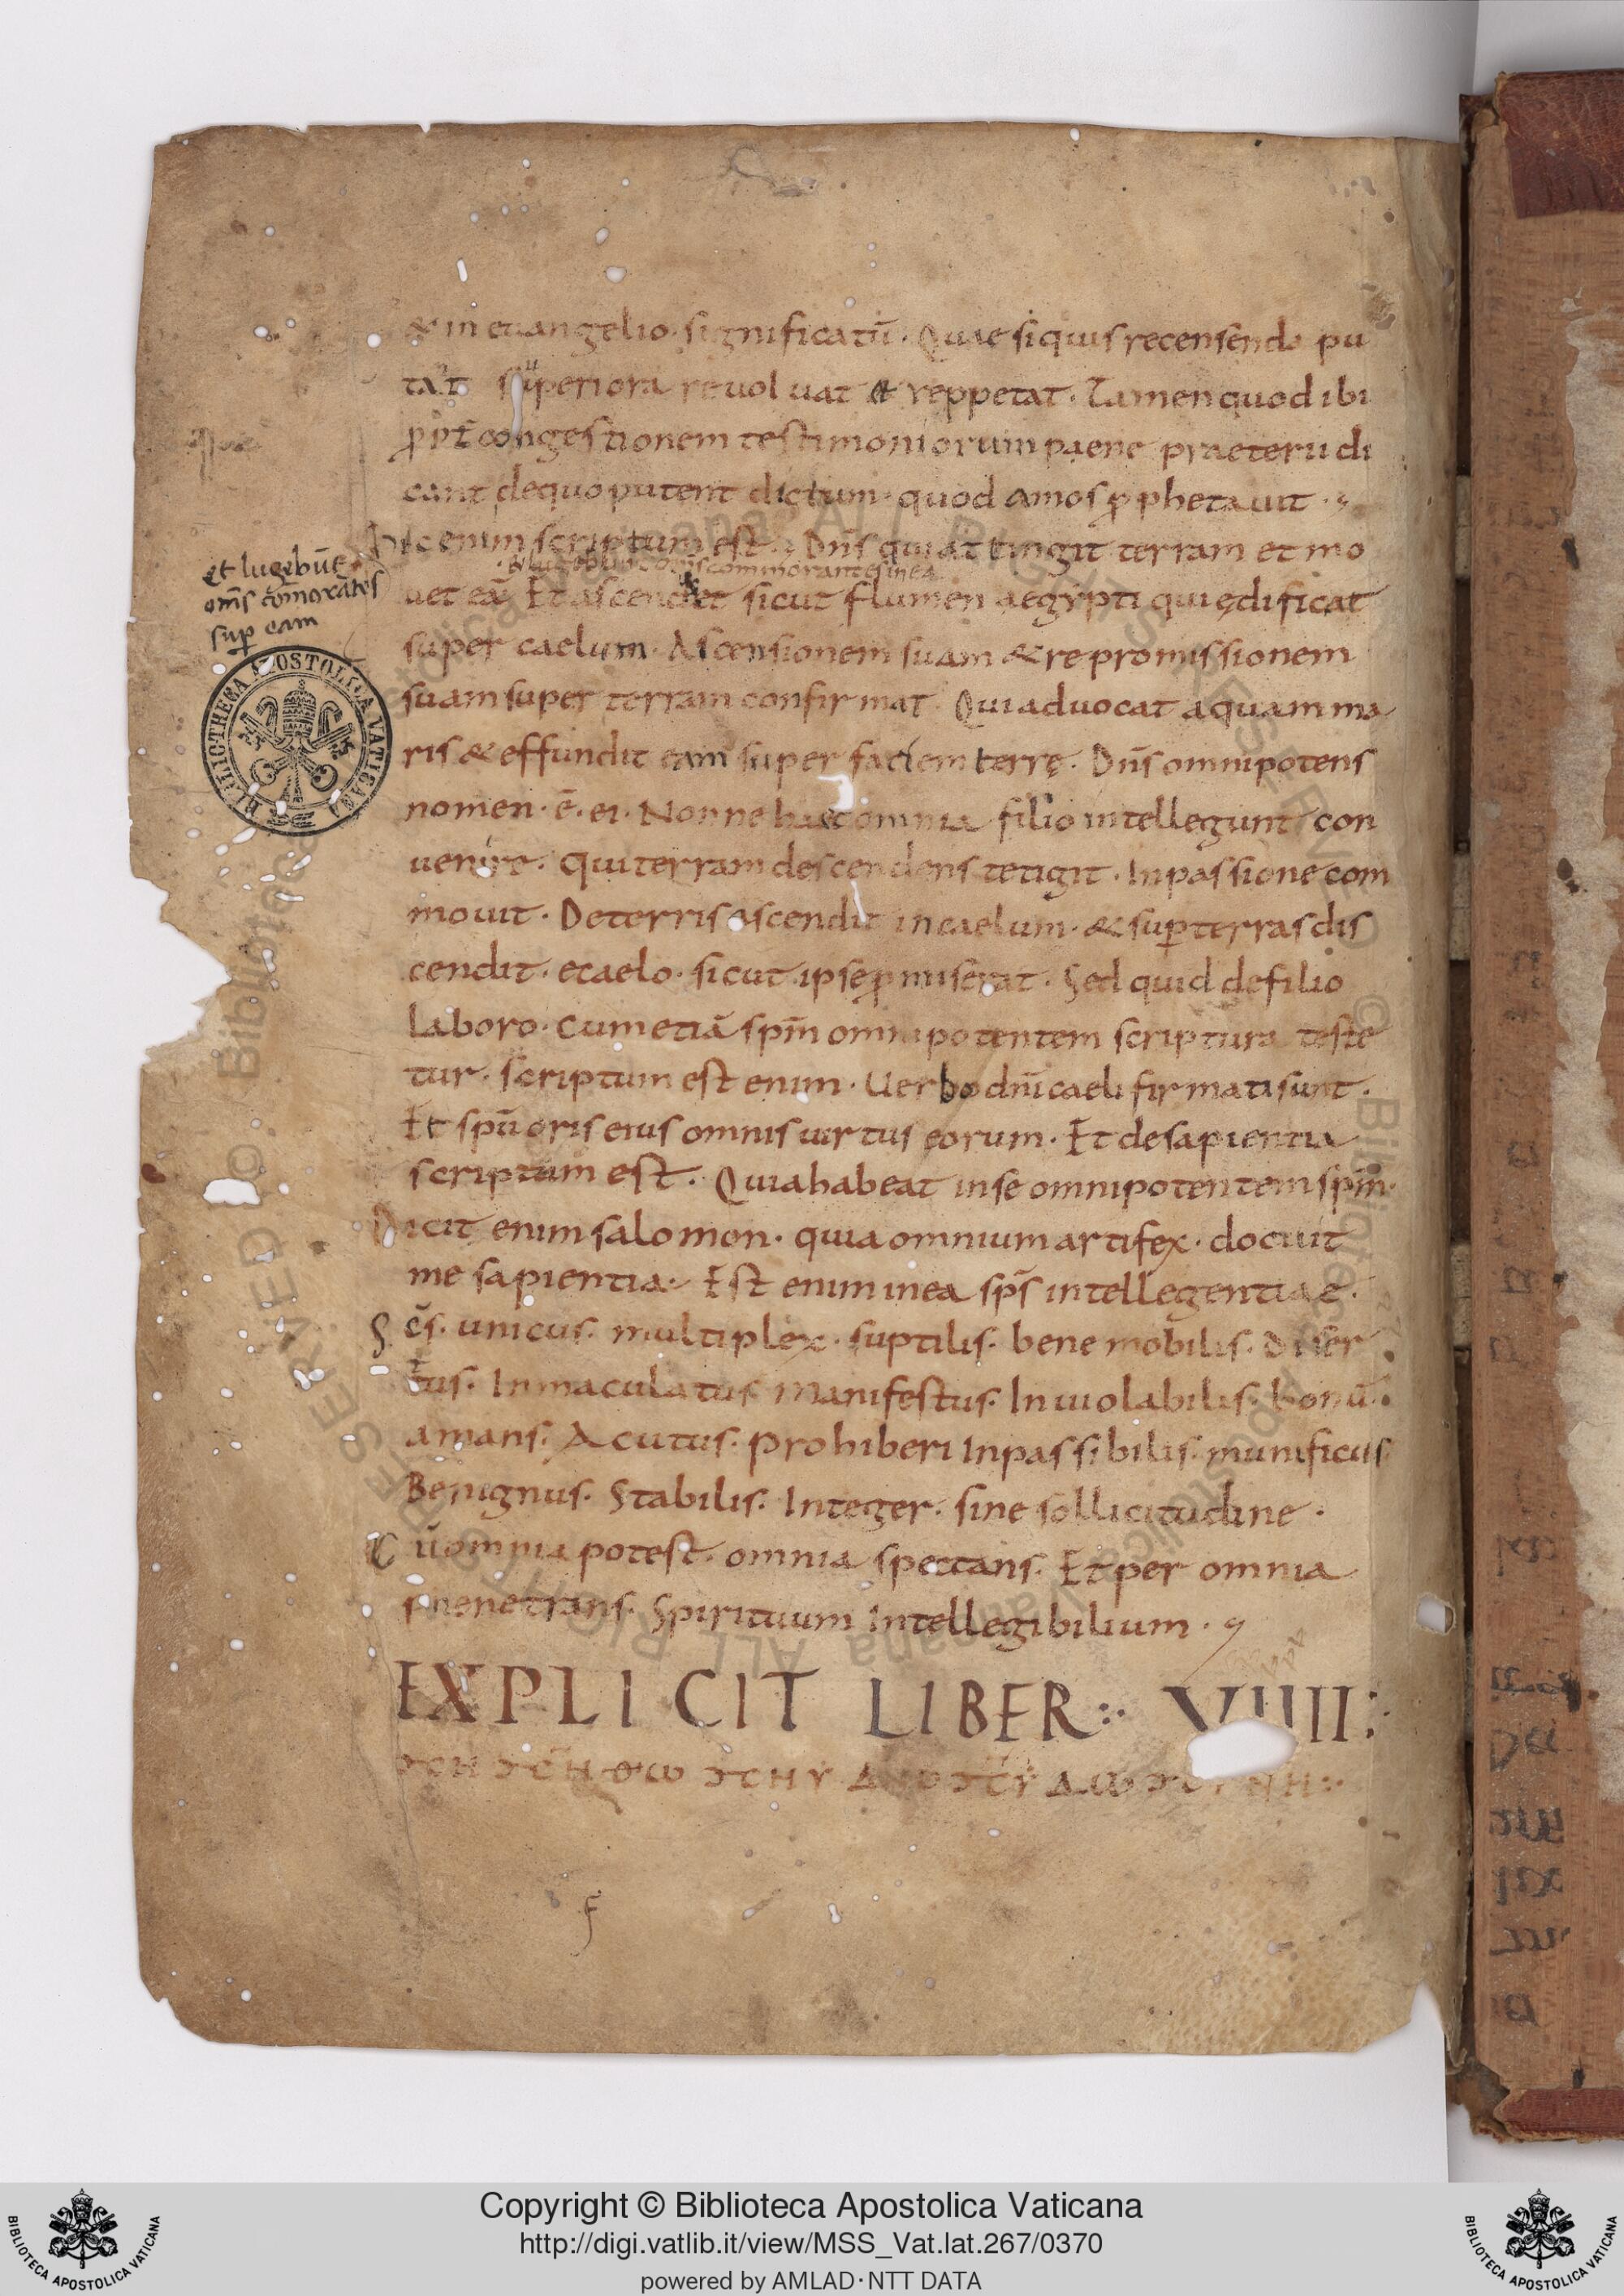 & in euangelio· significatū· Quae siquis recensenda pu
tat superiora reuoluat et reppetat· Tamen quod ibi
ꝓpt̄ congestionem testimoniorum paene praeteriĩ di
cant dequo putent dictum· quod amos ꝓphetauit·
Sic enim scriptum est· Dn̄s qui attingit terram et mo
et lugebūt
om̄s com̄orātes
sup eam
uet eā Et ascendet sicut flumen aegypti qui ędificat
super caelum· Ascensionem suam & repromissionem
suam super terram confirmat· Qui aduocat aquam ma
ris & effundit eam super faciem terrę· Dn̄s omnipotens
nomen· ē· ei· Nonne haec omnia filio intellegunt con
uenire· Qui terram descendens tetigit· In passione com
mouit· De terris ascendit in caelum· & suꝑ terras dis
cendit· ecaelo· sicut ipse ꝓmiserat· Sed quid defilio
laboro· cum etiā spm̄ omnipotentem scriptura teste
tur· scriptum est enim· Uerbo dn̄i caeli firmati sunt·
Et spū oris eius omnis uirtus eorum· Et desapientia
scriptum est· Quia habeat inse omnipotentem spm̄·
Dicit enim salomon· quia omnium artifex· docuit
me sapientia· Est enim inea sp̄s intellegentiae·
Sc̄s· unicus· multiplex· suptilis· bene mobilis· diser
tus· Inmaculatus manifestus· Inuiolabilis· bonū·
amans· Acutus· prohiberi Inpassibilis· munificus
Benignus· Stabilis· Integer· sine sollicitudine·
Cū omnia potest· omnia spectans· Et per omnia
penetrans· Spirituum Intellegibilium·
EXPLICIT LIBER VIIII
BIBLIOTHECA APOSTOLICA VATICANA
f
Copyright © Biblioteca Apostolica Vaticana
http://digi.vatlib.it/view/MSS_Vat.lat.267/0370
powered by AMLAD·NTT DATA
BIBLIOTECA APOSTOLICA VATICANA
BIBLIOTECA APOSTOLICA VATICANA